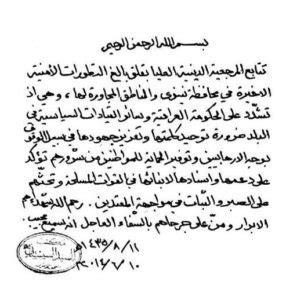 بسم الله الرحمن الرحيم
تتابع المرجعية الدينية العليا بقلق بالغ التطورات الأمنية
الاخيرة في محافظة نينوى والمناطق المجاورة لها، وهي اذ
تشدّد على الحكومة العراقية وسائر القيادات السياسية في
البلد ضرورة توحيد كلمتها وتعزيز جهودها في سبيل الوقوف
بوجه الارهابيين وتوفير الحماية للمواطنين من شرورهم تؤكد
على دعمها واسنادها لابنائها في القوات المسلحة وتحثهم
على الصبر والثبات في مواجهة المعتدين. رحم الله شهداءهم
الابرار ومنّ على جرحاهم بالشفاء العاجل انه سميع مجيب
١٤٣٥/٨/١١هـ
٢٠١٤/٦/١٠م